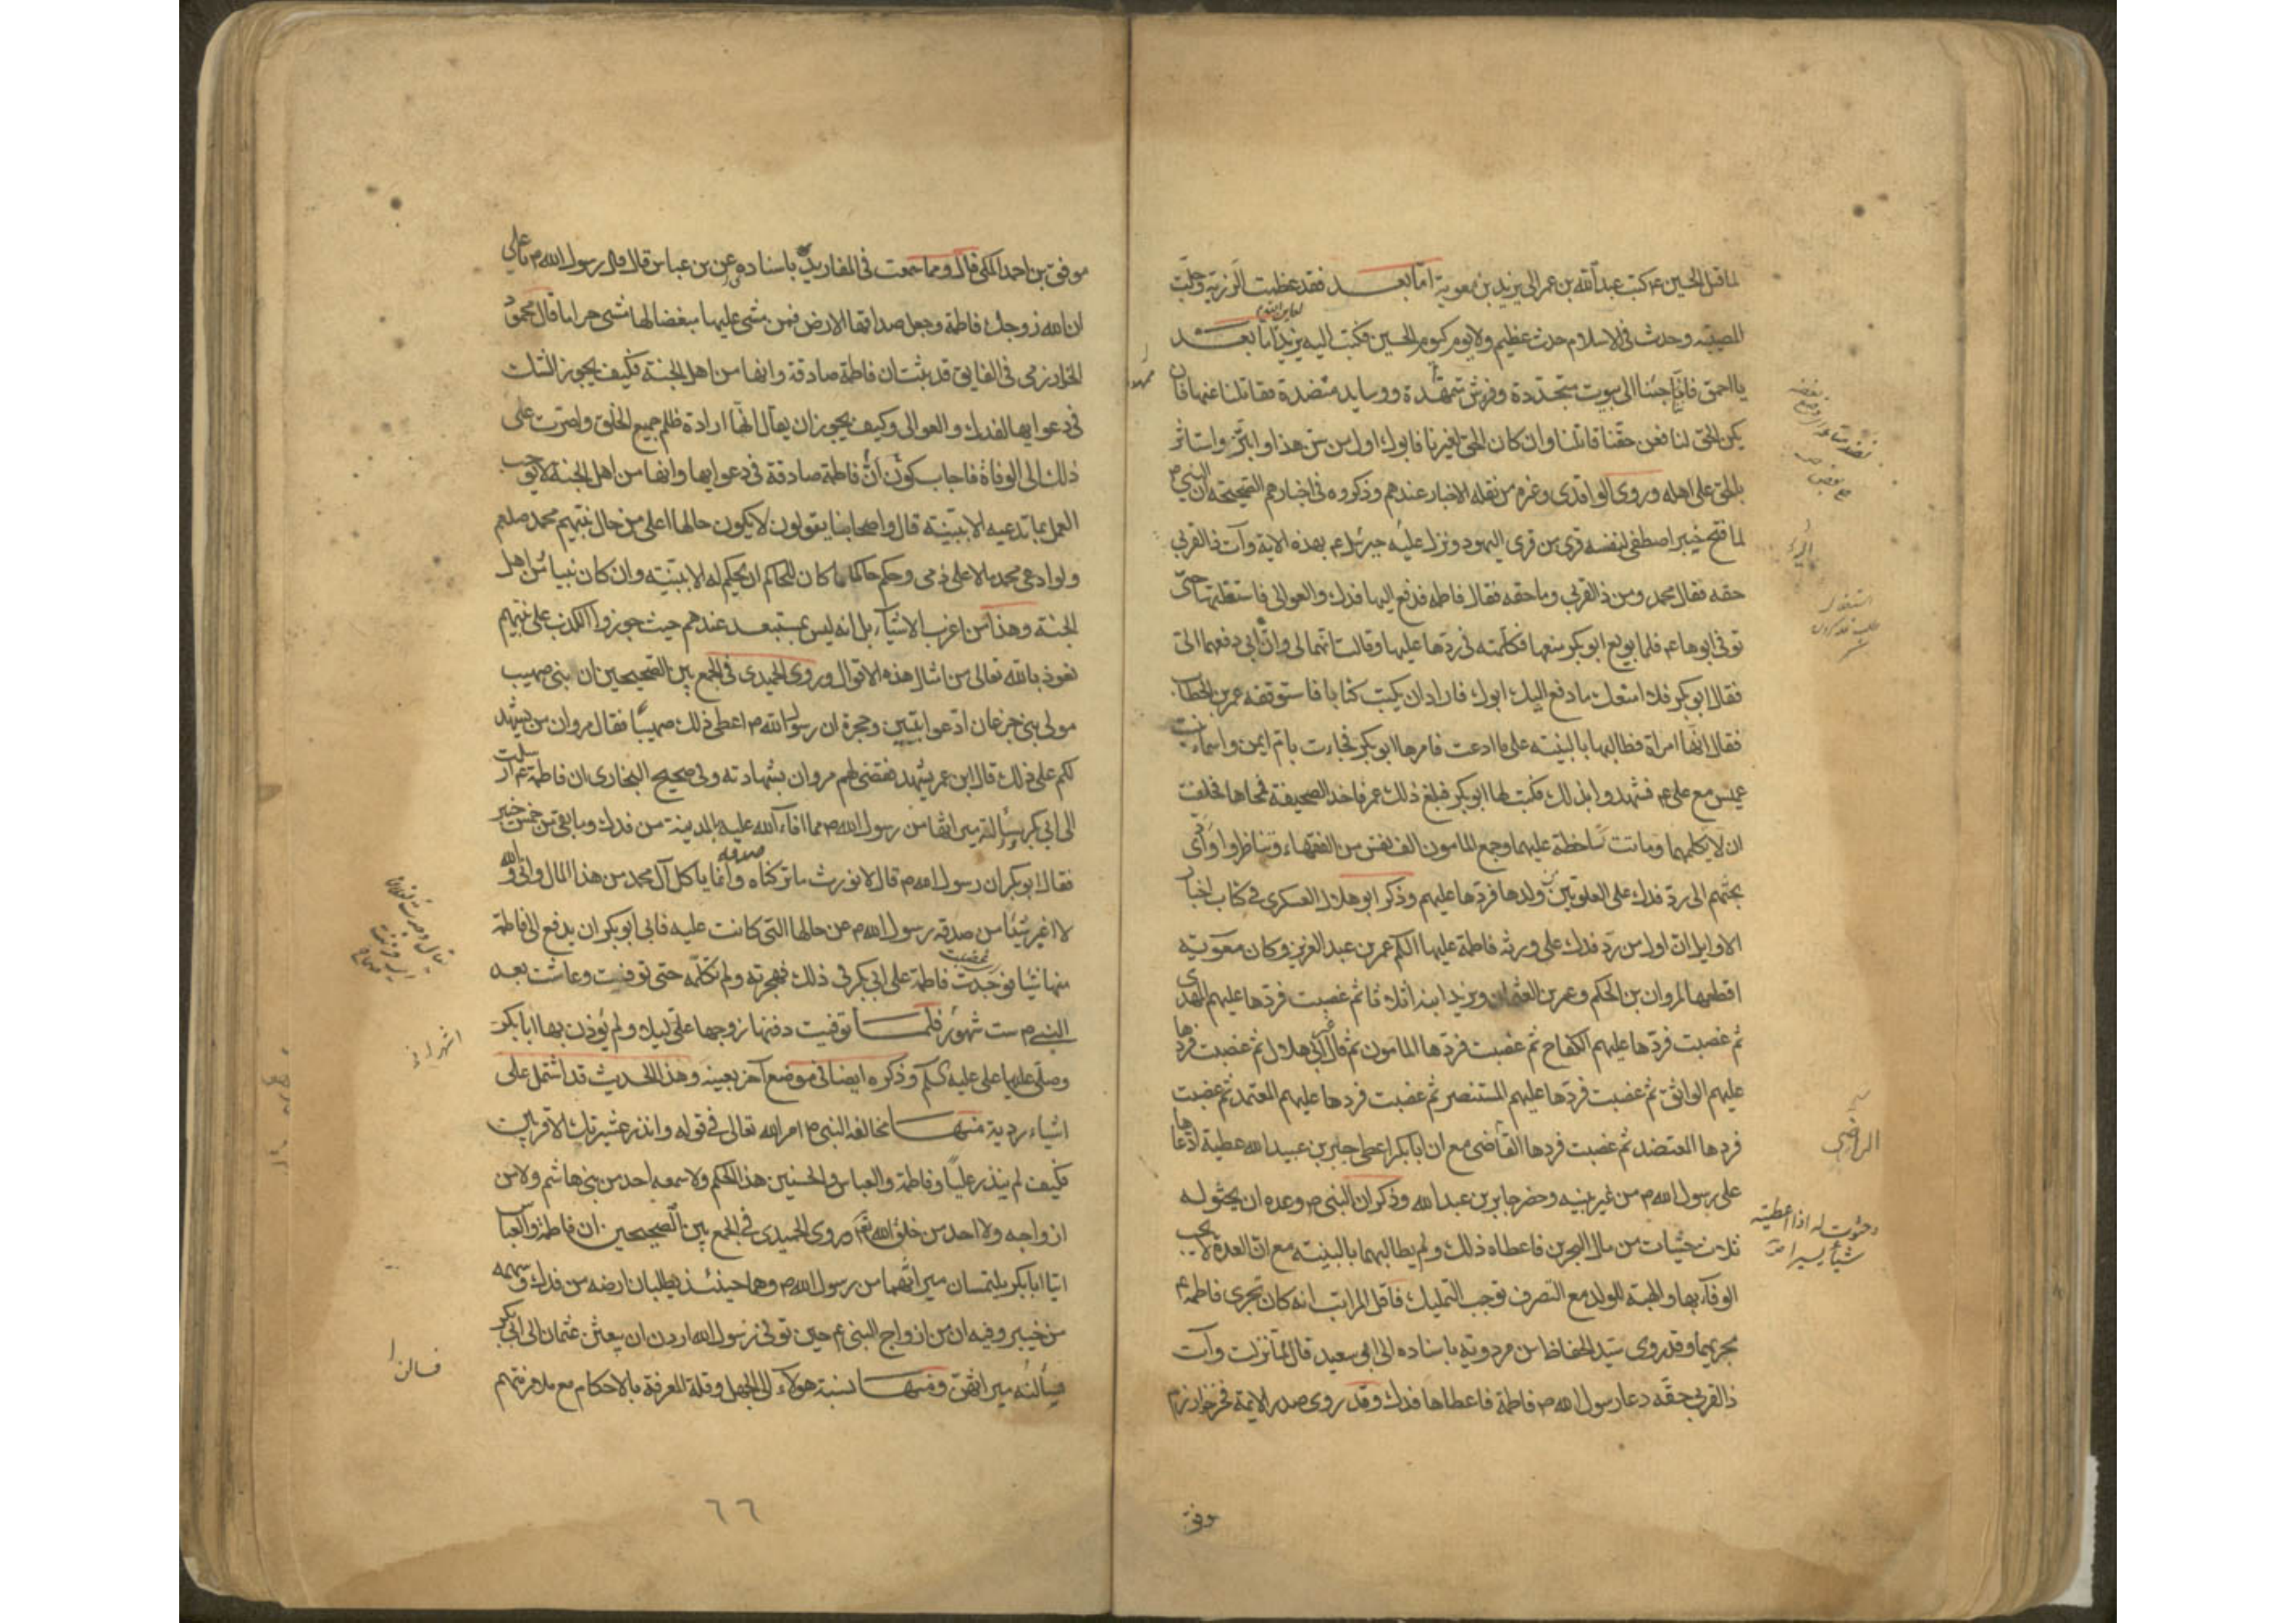 لما قتل الحسين ع م كتب عبد الله بن عمر الى يزيد بن معوية اما بعد فقد عظمت الرزية وجلت
المصيبة وحدث فى الاسلام حدث عظيم ولا يوم كيوم الحسين فكتب اليه يزيد اما بعد
يا احمق فانا جئنا الى بيوت متجددة وفرش ممهدة ووسايد منضدة فقاتلنا عنها فان
يكن الحق لنا فعن حقنا قاتلنا وان كان الحق لغيرنا فابوك اول من سن هذا وابتز واستاثر
بالحق على اهله وروى الواقدى وغيره من نقله الاخبار عندهم وذكروه فى اخبارهم الصحيحة ان النبى م
لما فتح خيبر اصطفى لنفسه قرى من قرى اليهود ونزل عليه جبرئيل ع م بهذه الاية وآت ذا القربى
حقه فقال محمد ومن ذا القربى وما حقه فقال فاطمه فدفع اليها فدك والعوالى فاستغلتها حتى
توفى ابوها ع م فلما بويع ابو بكر منعها فكلمته فى ردها عليها وقالت انهما لى وان ابى دفعهما الى
فقال ابو بكر فلا امنعك ما دفع اليك ابوك فاراد ان يكتب كتابا فاستوقفه عمر بن الخطاب
فقال انها امراة فطالبها بالبينه على ما ادعت فامرها ابو بكر فجاءت بام ايمن واسماء بنت
عميس مع على ع م فشهدوا بذلك فكتب لها ابو بكر فبلغ ذلك عمر فاخذ الصحيفة فمحاها فحلفت
ان لا تكلمهما وماتت ساخطة عليهما وجمع المامون الف نفس من الفقهاء وتناظروا وادى
بحثهم الى رد فدك على العلويين من ولدها فردها عليهم وذكر ابو هلال العسكرى فى كتاب اخبار
الاوايل ان اول من رد فدك على ورثه فاطمة عليها السلم عمر بن عبد العزيز وكان معوية
اقطعها لمروان بن الحكم وعمر بن العثمان ويزيد ابنه اثلاثا ثم غصبت فردها عليهم المهدى
ثم غصبت فردها عليهم السفاح ثم غصبت فردها المامون ثم قال ابى هلال ثم غصبت فردها
عليهم الواثق ثم غصبت فردها عليهم المستنصر ثم غصبت فردها عليهم المعتمد ثم غصبت
فردها المعتضد ثم غصبت فردها القاضى مع ان ابا بكر اعطى جابر بن عبيد الله عطية ادعاها
على رسول الله م من غير بينه وحضر جابر بن عبد الله وذكر ان النبى م وعده ان يحثو له
ثلاث حثيات من مال البحرين فاعطاه ذلك ولم يطالبهما بالبينه مع ان العدة لا يجب
الوفاء بها والهبة للولد مع التصرف توجب التمليك فاقل المراتب انه كان تجرى فاطمه ع م
مجريهما وقد روى سيد الحفاظ ابن مردوية باسناده الى ابى سعيد قال لما نزلت وآت
ذا القربى حقه دعا رسول الله م فاطمة فاعطاها فدك وقد روى صدر الايمة فخر خوارزم
موفق
الراضى
وحثوت له اذا اعطيته
شيئا يسيرا
موفق بن احمد المكى قال ومما سمعت فى المفاريد باسناده عن بن عباس قال قال رسول الله م يا على
ان الله زوجك فاطمة وجعل صداقها الارض فمن مشى عليها مبغضا لها مشى حراما قال محمود
الخوارزمى فى الفايق قد ثبت ان فاطمة صادقة وانها من اهل الجنة فكيف يجوز الشك
فى دعوايها لفدك والعوالى وكيف يجوز ان يقال انها ارادة ظلم جميع الخلق واصرت على
ذلك الى الوفاة فاجاب كون ان فاطمة صادقة فى دعوايها وانها من اهل الجنة لا يوجب
العمل بما تدعيه الا ببينة قال واصحابنا يقولون لا يكون حالها اعلى من حال نبيهم محمد صلعم
ولو ادعى محمد مالا على ذمى وحكم حاكما ما كان للحاكم ان يحكم له الا ببينة وان كان نبيا من اهل
الجنة وهذا من اغرب الاشياء بل انه ليس بمستبعد عندهم حيث جوزوا الكذب على نبيهم
نعوذ بالله تعالى من امثال هذه الاقوال وروى الحميدى فى الجمع بين الصحيحين ان بنى صهيب
مولى بنى جزعان ادعوا بيتين وحجرة ان رسول الله م اعطى ذلك صهيبا فقال مروان من يشهد
لكم على ذلك قال ابن عمر يشهد فقضى لهم مروان بشهادته وفى صحيح البخارى ان فاطمة ع م ارسلت
الى ابى بكر يسألته ميراثها من رسول الله م مما افاء الله عليه بالمدينة من فدك وما بقى من خمس خيبر
فقال ابو بكر ان رسول الله م قال لا نورث ما تركناه صدقه وانما ياكل آل محمد من هذا المال وانى والله
لا اغير شيئا من صدقه رسول الله م عن حالها التى كانت عليه فابى ابو بكر ان يدفع الى فاطمة
منها شيئا فوجدت فاطمة على ابى بكر فى ذلك فهجرته ولم تكلمه حتى توفيت وعاشت بعد
النبى م ست شهور فلما توفيت دفنها زوجها على ليلا ولم يوذن بها ابا بكر
وصلى عليها على عليه السلم وذكره ايضا فى موضع آخر بعينه وهذا الحديث قد اشتمل على
اشياء ردية منها مخالفة النبى م امر الله تعالى فى قوله وانذر عشيرتك الاقربين
فكيف لم ينذر عليا وفاطمة والعباس والحسنين هذا الحكم ولا سمعه احد من بنى هاشم ولا من
ازواجه ولا احد من خلق الله وروى الحميدى فى الجمع بين الصحيحين ان فاطمة والعباس
اتيا ابا بكر يلتمسان ميراثهما من رسول الله م وهما حينئذ يطلبان ارضه من فدك وسهمه
من خيبر وفيه ان من ازواج النبى ع م حين توفى رسول الله اردن ان يبعثن عثمان الى ابى بكر
فيسألنه ميراثهن ومنها نسبة هولاء الى الجهل وقلة المعرفة بالاحكام مع ملازمتهم
اشهر
٦٦